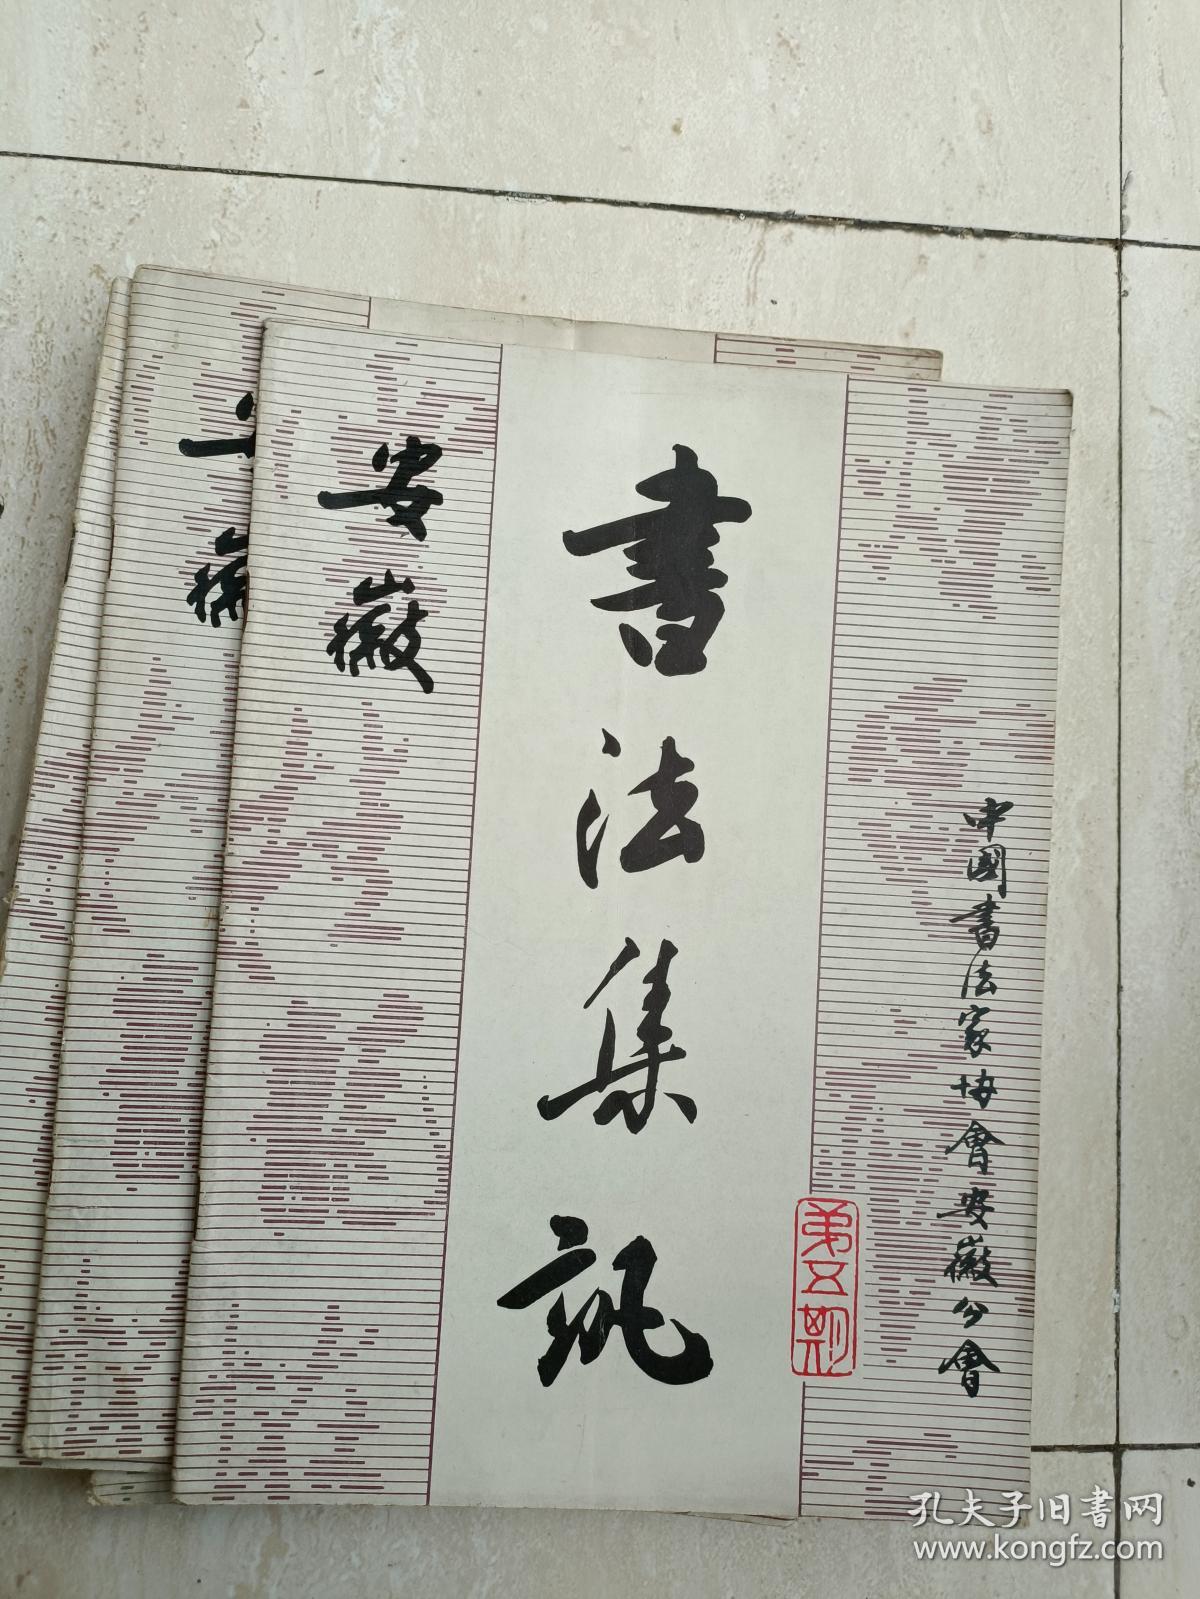 安徽
書法集訊
中國書法家协會安徽分會
第五期
安徽
孔夫子旧書网
www.kongfz.com